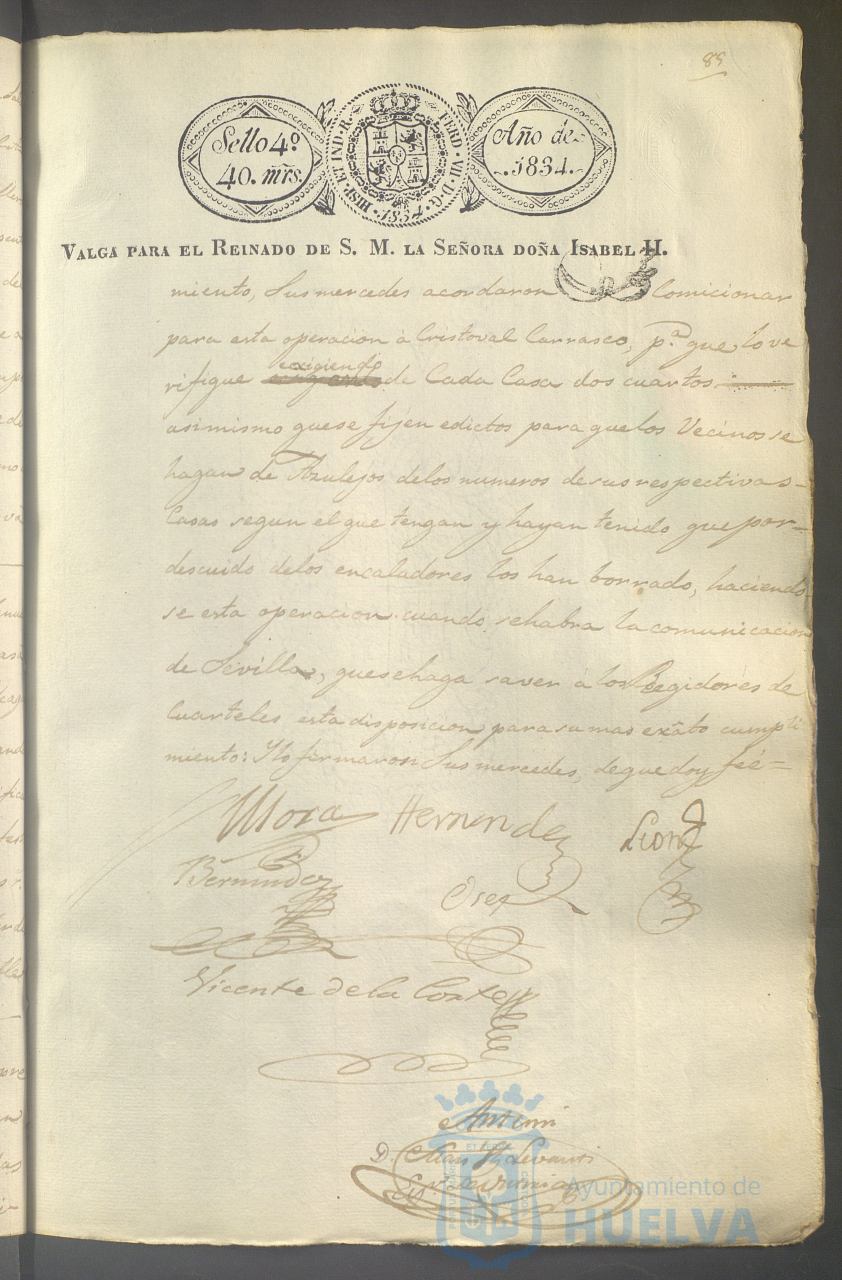 85
Sello 4.º
40. mrs.
HISP. ET IND. R. FERD. VII. D. G. 1834
Año de
1834.
VALGA PARA EL REINADO DE S. M. LA SEÑORA DOÑA ISABEL II.
miento, Sus mercedes acordaron Comicionar
para esta operacion à Cristoval Carrasco, p.ª que lo ve
exigiendo
rifique de Cada Casa dos cuartos
asimismo que se fijen edictos para que los Vecinos se
hagan de Azulejos de los numeros de sus respectivas
Casas segun el que tengan y hayan tenido que por
descuido de los encaladores los han borrado, haciendo
se esta operacion cuando se habra la comunicacion
de Sevilla, que se haga saver à los Regidores de
Cuarteles esta disposicion para su mas exâto cumpli
miento: Y lo firmaron Sus mercedes, de que doy feé=
Mora Hernandez Leon
Bermudez Osey
Vicente de la Corte
Antemi
D.
Ayuntamiento de
HUELVA